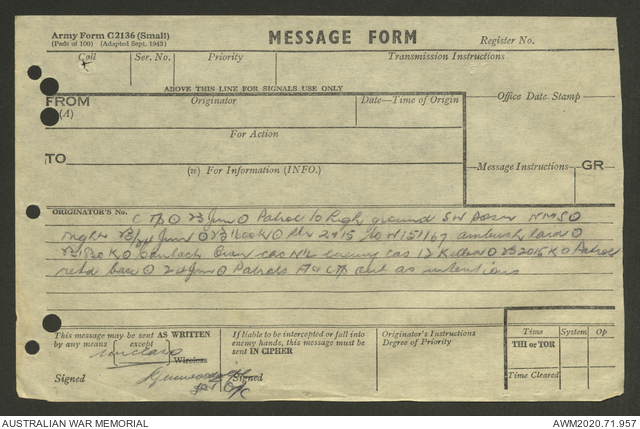 Army Form C2136 (Small)
(Pads of 100) (Adapted Sept. 1943)
MESSAGE FORM
Register No.
Call
Ser. No.
Priority
Transmission Instructions
ABOVE THIS LINE FOR SIGNALS USE ONLY
FROM
(A)
Originator
Date—Time of Origin
Office Date Stamp
For Action
TO
(W) For Information (INFO.)
Message Instructions
GR
ORIGINATOR'S No.
C Tp O 23 Jun O Patrol to high ground SW posn
23/24 Jun O 23 1600K O 2415 to W151167 ambush laid O
231830K O cas NIL enemy cas 12 killed O 232015K O Patrol
retd base O 24 Jun O Patrols A & C Tp out as intentions
This message may be sent AS WRITTEN
by any means { except }
Wireless
unclass
Signed
If liable to be intercepted or fall into
enemy hands, this message must be
sent IN CIPHER
Signed
Originator's Instructions
Degree of Priority
Time
System
Op
THI or TOR
Time Cleared
AUSTRALIAN WAR MEMORIAL
AWM2020.71.957